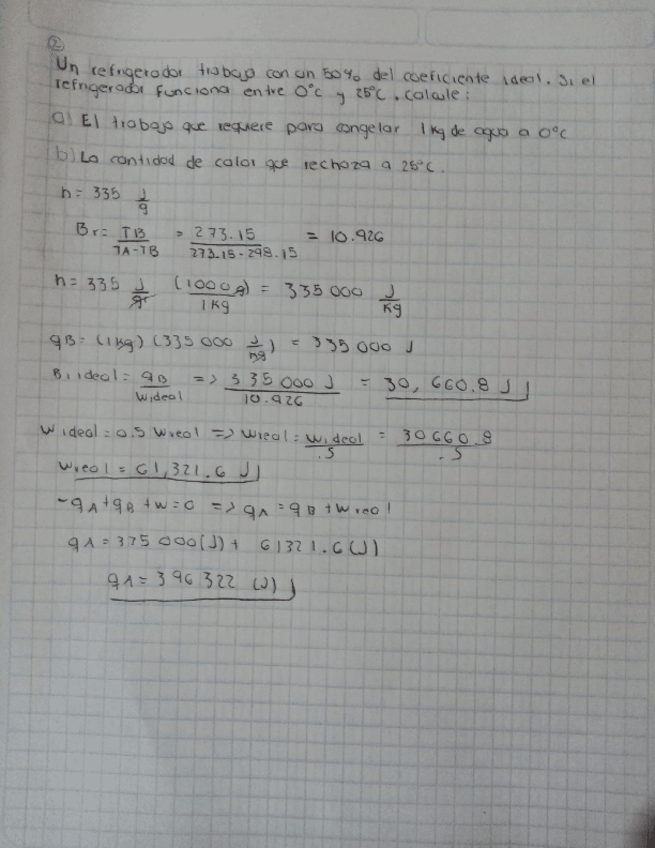 ②
Un refrigerador trabaja con un 50% del coeficiente ideal. Si el
refrigerador funciona entre 0°C y 25°C, calcule:
a) El trabajo que requiere para congelar 1 kg de agua a 0°C
b) La cantidad de calor que rechaza a 25°C.
h = 335 J/g
Br = TB/TA-TB = 273.15/273.15-298.15 = 10.926
h = 335 J/g (1000g)/1 Kg = 335 000 J/Kg
qB = (1kg) (335 000 J/kg) = 335 000 J
B, ideal = qB/Wideal => 335 000 J/10.926 = 30,660.8 J
W ideal = 0.5 Wreal => Wreal = W,ideal/.5 = 30660.8/.5
Wreal = 61,321.6 J
-qA+qB+W=0 => qA = qB + Wreal
qA = 335 000(J) + 61321.6(J)
qA = 396 322 (J)